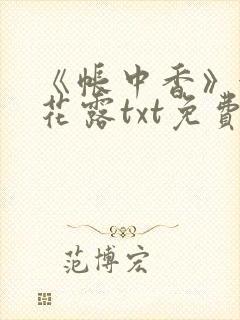 《帐中香》
花露txt免費
范博宏